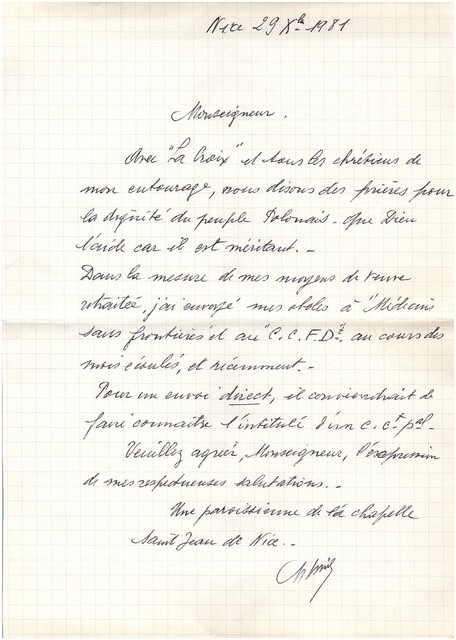 Nice 29 Xbre 1981
Monseigneur,
Avec "La Croix" et tous les chrétiens de
mon entourage, nous disons des prières pour
la dignité du peuple Polonais - que Dieu
l'aide car il est méritant. -
Dans la mesure de mes moyens de veuve
retraitée, j'ai envoyé mes oboles à "Médecins
sans frontières" et au "C.C.F.D", au cours des
mois écoulés, et récemment. -
Pour un envoi direct, il conviendrait de
faire connaître l'intitulé d'un c. ct pal -
Veuillez agréer, Monseigneur, l'expression
de mes respectueuses salutations. -
Une paroissienne de la chapelle
Saint Jean de Nice. -